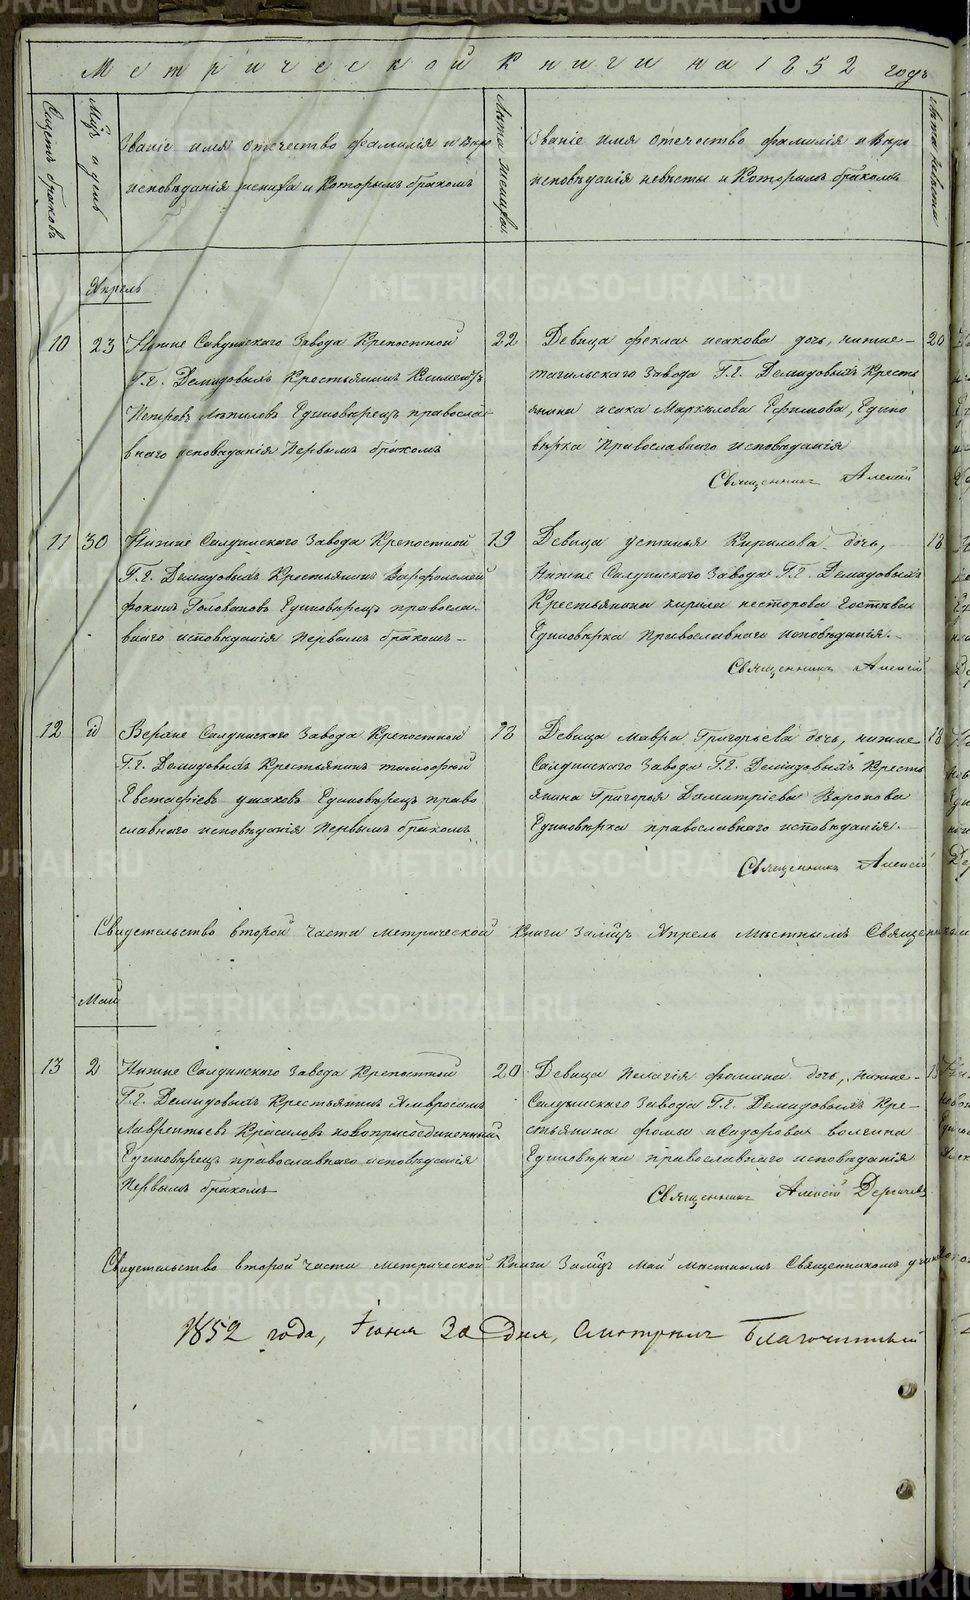 Метрической Книги на 1852 годъ
Счетъ браковъ
Мцъ и день
Званіе имя отечество фамилія и веро
исповѣданія жениха и которымъ бракомъ
Лѣта жениха
Званіе имя отечество фамилія и веро
исповѣданія невесты и которымъ бракомъ
Лѣта невесты
Апрель
10 23 Нижне Салдинскаго Завода Крепостной
Г.г. Демидовыхъ Крестьянинъ Климентъ
Петровъ Единоверецъ правосла-
внаго исповеданія Первымъ бракомъ
22 Девица фекла исакова дочь, нижне- 20
тагильскаго Завода Г.г. Демидовыхъ Кресть
янина исака Маркелова Ефимова, Едино
верка Православнаго исповеданія
Священникъ Алексій
11 30 Нижне Салдинскаго Завода Крепостной
Г.г. Демидовыхъ Крестьянинъ Варфоломей
фокинъ Головановъ Единоверецъ правосла-
внаго исповеданія первымъ бракомъ-
19 Девица устинья Кирилова дочь, 18
Нижне Салдинскаго Завода Г.г. Демидовыхъ
Крестьянина кирила несторова
Единоверка Православнаго исповеданія.-
Священникъ Алексій
12 id Верхне Салдинскаго Завода Крепостной
Г.г. Демидовыхъ Крестьянинъ тимофей
Евстафіевъ ушаковъ Единоверецъ право
славнаго исповеданія Первымъ бракомъ
18 Девица мавра Григорьева дочь, нижне 18
Салдинскаго Завода Г.г. Демидовыхъ Кресть
янина Григорья Димитріева Воронова
Единоверка православнаго исповеданія.
Священникъ Алексій
Свидетельство второй части метрической Книги за мцъ Апрель местнымъ Священникомъ
Май
13 2 Нижне Салдинскаго Завода Крепостной
Г.г. Демидовыхъ Крестьянинъ Амвросимъ
Лаврентьевъ Красиловъ новоприсоединенный
Единоверецъ православнаго исповеданія
Первымъ бракомъ
20 Девица Пелагія фомина дочь, Нижне-
Салдинскаго Завода Г.г. Демидовыхъ Кре-
стьянина фомы исидорова волгина
Единоверка православнаго исповеданія
Священникъ Алексій Дергачевъ
Свидетельство второй части метрической Книги за мцъ Май местнымъ Священникомъ
1852 года, Іюня 30 дня, Смотрелъ Благочинный
METRIKI.GASO-URAL.RU